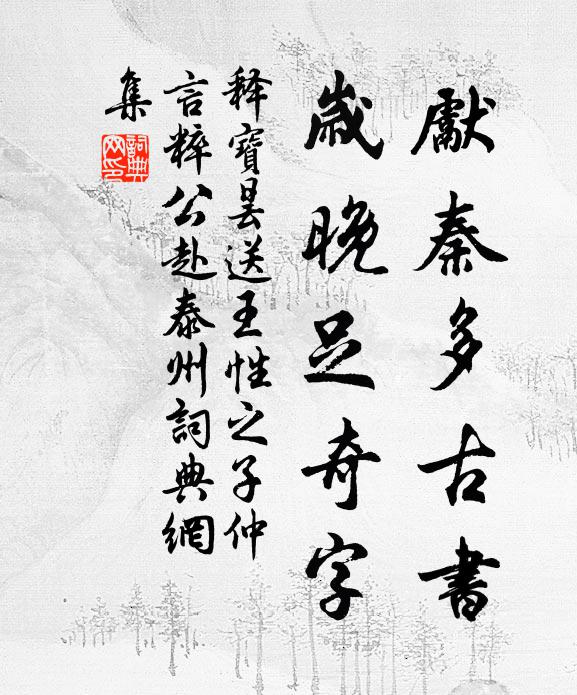 獻秦多古書
歲晚足奇字
释寶曇送王性之子仲
言粹公赴泰州詞典網
集
詞典
网印